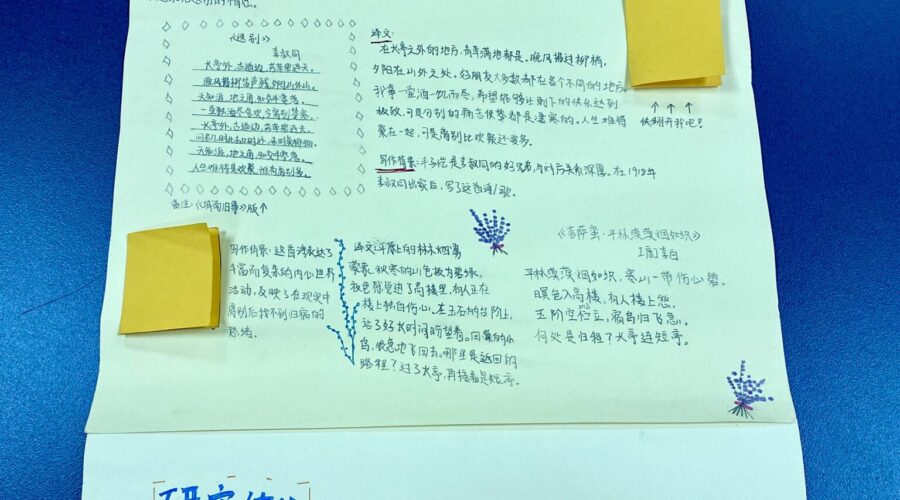 《送别》
李叔同
长亭外,古道边,芳草碧连天。
晚风拂柳笛声残,夕阳山外山。
天之涯,地之角,知交半零落。
一壶浊酒尽余欢,今宵别梦寒。
长亭外,古道边,芳草碧连天。
天之涯,地之角,知交半零落。
人生难得是欢聚,惟有别离多。
备注:《城南旧事》版↑
译义:
在长亭之外的地方,青草满地都是。晚风拂过柳梢,
夕阳在山外之处。好朋友大多数都在各个不同的地方。
那拿一壶酒一饮而尽,希望能够让剩下的快乐达到
极致,可是分别的
都是凄寒的。人生难得
聚在一起,可是离别比欢聚还要多。
写作背景:
是李叔同的好兄弟,与对方关系深厚。在1918年
李叔同出家后,写了这首诗/歌。
↑ ↑ ↑
快翻开我吧!
写作背景:这首诗表达了
丰富而复杂的内心世界
活动,反映了在现实中
离别后找不到归宿的
愁绪。
译义:平原上的林木烟雾
蒙蒙,秋寒的山色极为碧绿,
夜色已经进了高楼里,有人正在
楼上独自伤心。在玉石的台阶上,
站了好长时间盼望着。回巢的小
鸟,很急地飞回去。哪里是返回的
路程?过了长亭,再接着是短亭。
《菩萨蛮·平林漠漠烟如织》
[唐]李白
平林漠漠烟如织,寒山一带伤心碧。
暝色入高楼,有人楼上愁。
玉阶空伫立,宿鸟归飞急。
何处是归程?长亭连短亭。